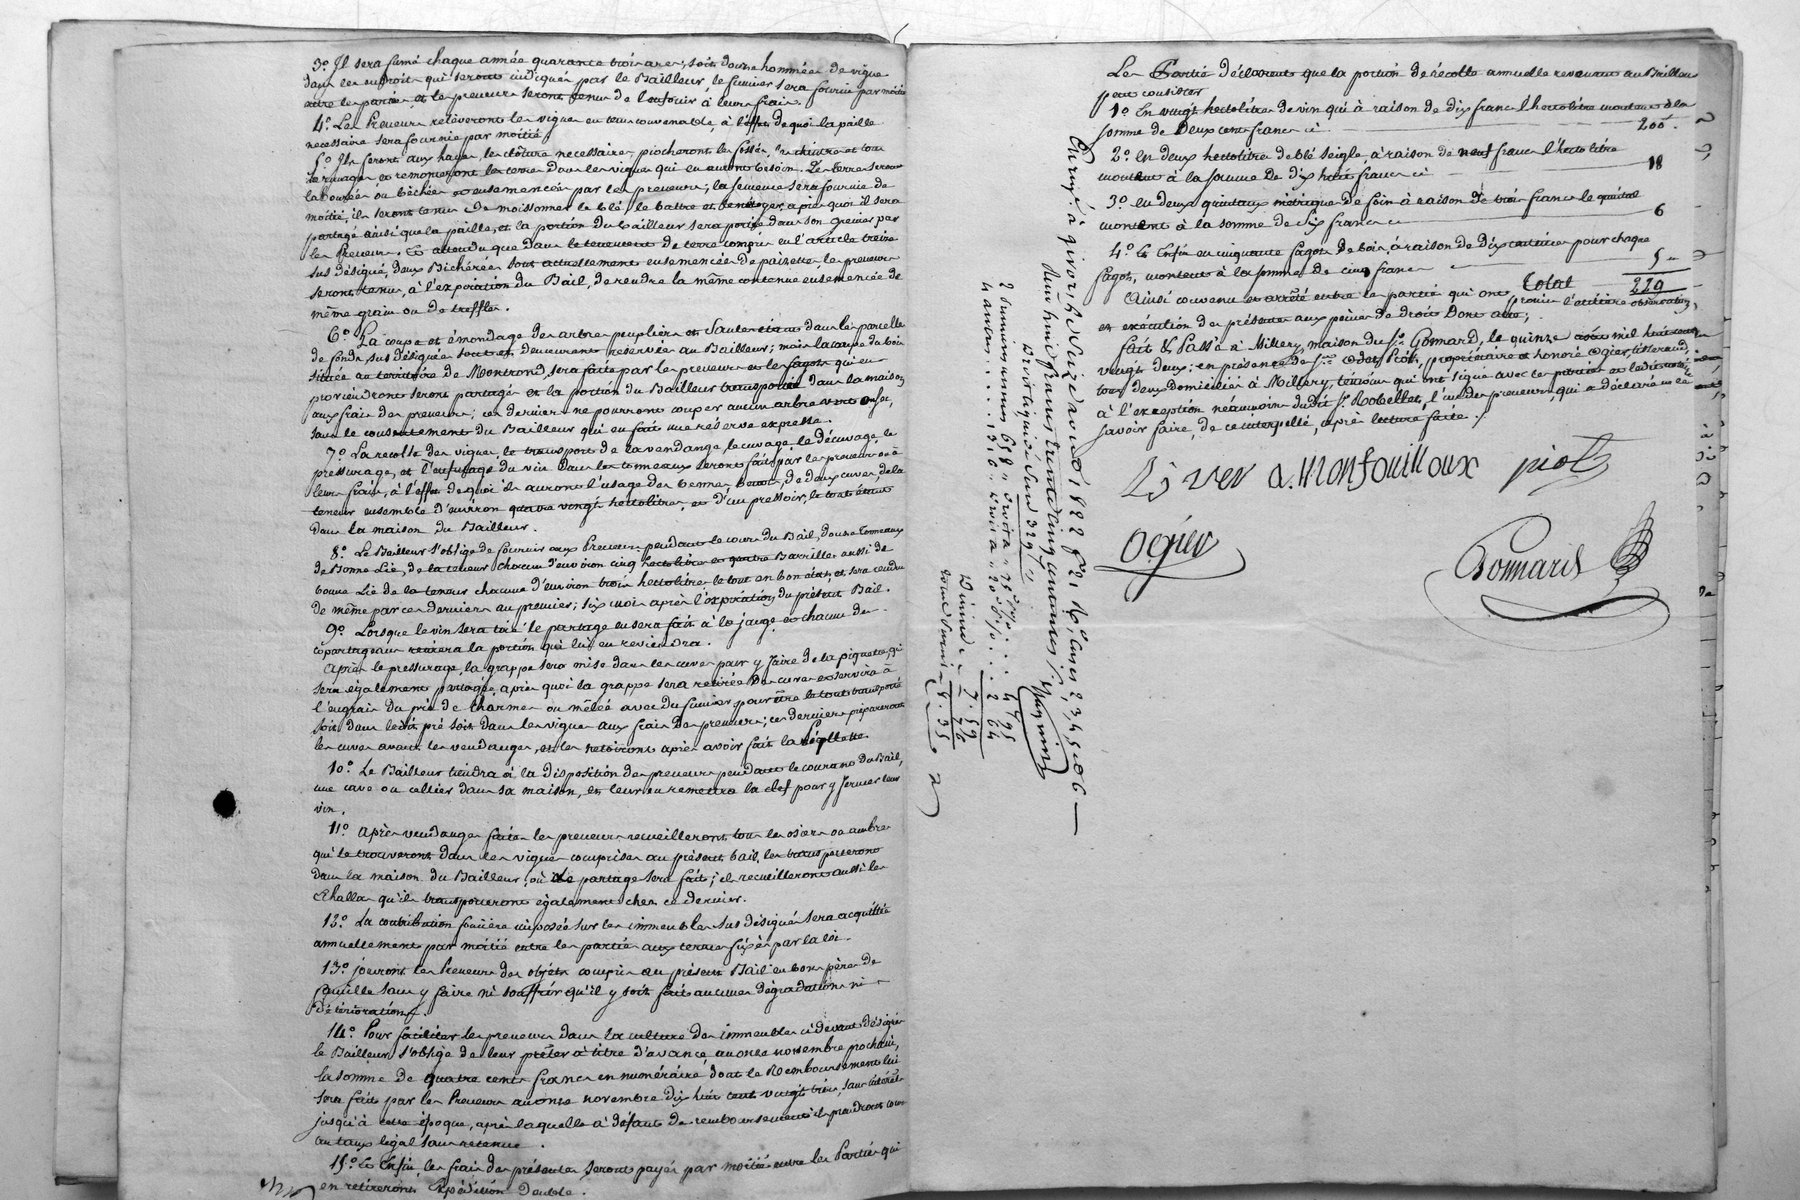 3.° Il sera fumé chaque année quarante trois ares, soit douze hommées de vigne
dans les endroits qui seront indiqués par le Bailleur, le fumier sera fourni par moitié
entre les parties, et les preneurs seront tenus de l'enfouir à leurs frais.
4.° Les Preneurs relèveront les vignes en tems convenable, à l'effet de quoi la paille
nécessaire sera fournie par moitié.
5.° Ils feront aux hayes, les clôtures nécessaires, piocheront les fossés, et tous
les rivages et remonteront les terres dans les vignes qui en auront besoin. Les terres seront
labourées ou bêchées et ensemencées par les preneurs; la semence sera fournie de
moitié, ils seront tenus de moissonner le blé, le battre et le nettoyer, après quoi il sera
partagé ainsi que la paille, et la portion du bailleur sera portée dans son grenier par
les Preneurs. Et attendu que dans le tenement de terre compris en l'article treize
sus désigné, deux Bichérées sont actuellement ensemencées de paizette, les preneurs
seront tenus, à l'expiration du Bail, de rendre la même contenue ensemencée de
même grain ou de treffle.
6.° La coupe et émondage des arbres peupliers et Saules étant dans les parcelles
de fonds sus désignées sont et demeurent réservés au Bailleur; mais la coupe du bois
située au territoire de Montrond, sera faite par les preneurs et les fagots qui en
proviendront seront partagés et la portion du Bailleur transportée dans la maison
aux frais des preneurs; ces derniers ne pourront couper aucun arbre vert ou sec,
sans le consentement du Bailleur qui en fait une réserve expresse.
7.° La récolte des vignes, le transport de la vendange, le cuvage, le décuvage, le
pressurage, et l'enfutage du vin dans les tonneaux seront faits par les preneurs et à
leurs frais, à l'effet de quoi ils auront l'usage des bennes, de deux cuves, de la
teneur ensemble d'environ quatre vingt hectolitres, et d'un pressoir, le tout étant
dans la maison du Bailleur.
8.° Le Bailleur s'oblige de fournir aux Preneurs pendant le cours du Bail, douze Tonneaux
de Bonne Lie, de la teneur chacun d'environ cinq hectolitres et quatre Barrilles aussi de
bonne Lie de la teneur chacune d'environ trois hectolitres le tout en bon état, et sera rendu
de même par ces derniers au premier; six mois après l'expiration du présent Bail.
9.° Lorsque le vin sera tiré le partage en sera fait à la jauge et chacun des
copartageans retirera la portion qui lui en reviendra.
Après le pressurage, la grappe sera mise dans les cuves pour y faire de la piquette, qui
sera également partagée, après quoi la grappe sera retirée des cuves et servira à
l'engrais du pré de Charmes ou mêlée avec du fumier pour être le tout transporté
soit dans le dit pré soit dans les vignes aux frais des preneurs; ces derniers prépareront
les cuves avant les vendanges, et les nettoiront après avoir fait la récolte.
10.° Le Bailleur tiendra à la disposition des preneurs pendant le courant du Bail,
une cave ou cellier dans sa maison, et leur en remettra la clef pour y fermer leur
vin.
11.° Après vendanges faites les preneurs recueilleront tous les osiers ou ambres
qui se trouveront dans les vignes comprises au présent bail, les transporteront
dans la maison du Bailleur, où le partage sera fait; ils recueilleront aussi les
Echallas qu'ils transporteront également chez ce dernier.
12.° La contribution foncière imposée sur les immeubles sus désignés sera acquittée
annuellement par moitié entre les parties aux termes fixés par la loi.
13.° Jouiront les Preneurs des objets compris au présent Bail en bons pères de
famille sans y faire ni souffrir qu'il y soit fait aucunes dégradations ni
détériorations.
14.° Pour faciliter les preneurs dans la culture des immeubles ci devant désignés
le Bailleur s'oblige de leur prêter à titre d'avance, au onze novembre prochain,
la somme de quatre cents francs en numéraire dont le Remboursement lui
sera fait par les Preneurs au onze novembre dix huit cent vingt trois, sans intérêt
jusqu'à cette époque, après laquelle à défaut de remboursement ils prendront cours
au taux légal sans retenue.
15.° Et Enfin, les frais des présentes seront payés par moitié entre les Parties qui
en retireront Expédition double.
Les Parties déclarent que la portion de récolte annuelle revenant au Bailleur
peut consister
1.° En vingt hectolitres de vin qui à raison de dix francs l'hectolitre montent à la
somme de Deux cent francs ci 200.
2.° en deux hectolitres de blé seigle, à raison de neuf francs l'hectolitre
montent à la somme de dix huit francs ci 18
3.° en deux quintaux métriques de foin à raison de trois francs le quintal
montent à la somme de six francs ci 6
4.° Et Enfin en cinquante fagots de bois, à raison de dix centimes pour chaque
fagot, montent à la somme de cinq francs 5
Total 229
Ainsi convenu et arrêté entre les parties qui ont promis l'entière observation,
et exécution des présentes aux peines de droit Dont acte;
fait & Passé à Millery, maison du Sr. Gonnard, le quinze avril mil huit cent
vingt deux: en présence de Srs. Piot, propriétaire et honoré Ogier, tisserand,
tous deux domiciliés à Millery, témoins qui ont signé avec les parties et le dit notaire,
à l'exception néanmoins du dit Sr. Robellet, l'un des preneurs, qui a déclaré ne le
savoir faire, de ce interpellé, après lecture faite.
a. Monfouilloux piot
Ogier
Gonnard
Enr.gé à givors, le Seize avril 1822 f.° 21, V.°, Cases 2, 3, 4, 5 et 6